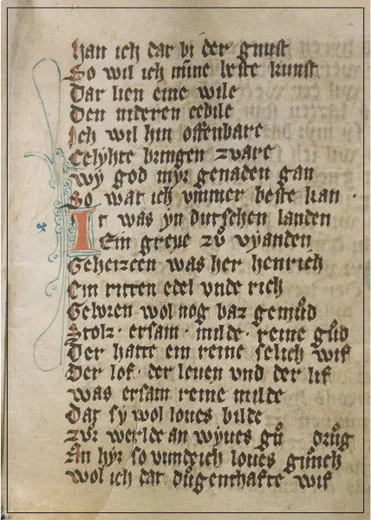 han ich dar bi der gunst
So wil ich mine beste kunst
Dar lien eine wile
Den nideren edile
Ich wil hin offenbare
Gelychte bringen zware
Wy god myr genaden gan
So war ich vmmer beste kan ·
It was yn dutschen landen
Ein greue zů vyanden
Geheizcen was her henrich
Ein ritter edel vnde rich
Geboren wol nog baz gemůd
Stolz · ersam · milde · reine gůd
Der hatte ein reine selich wif
Der lof · der leuen vnd der lif
was ersam reine milde
Dat sy wol loues bilde
zůr werlde an wyues gů drůg
An hyr so vundeich loues gůnch
wol ich dat důgenthafte wif